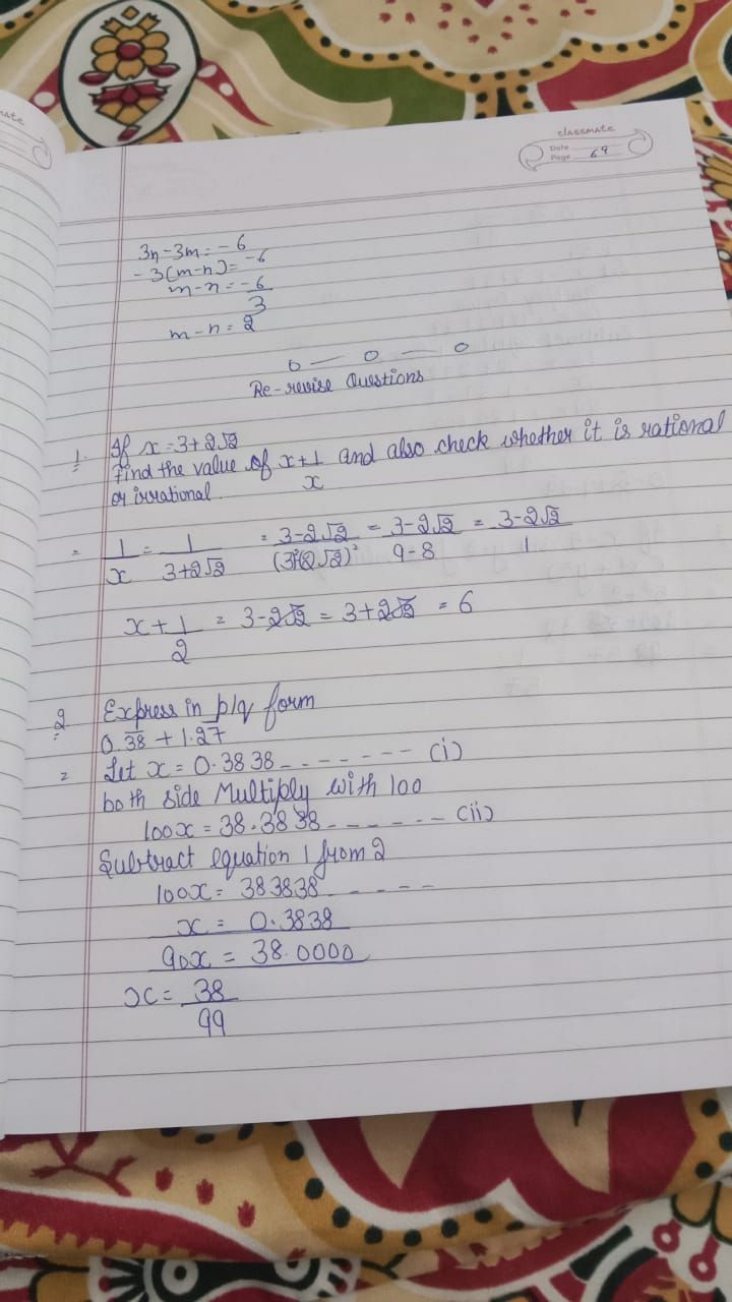 classmate
Date
Page 69
3n-3m = -6
-3(m-n) = -6
m-n = -6/3
m-n = 2
Re-revise Questions
1. If x = 3+2√2
Find the value of x+1/x and also check whether it is rational
or irrational.
= 1/x = 1/3+2√2 = 3-2√2/(3²(2√2)² = 3-2√2/9-8 = 3-2√2/1
x+1/2 = 3-2√2 = 3+2√2 = 6
2 Express in p/q form
0.3̅8̅ + 1.2̅7̅
= Let x = 0.3838 - - - - - - - (i)
both side Multiply with 100
100x = 38.3838 - - - - - - (ii)
Subtract equation 1 from 2
100x = 383838 - - - - -
x = 0.3838
90x = 38.0000
x = 38/99